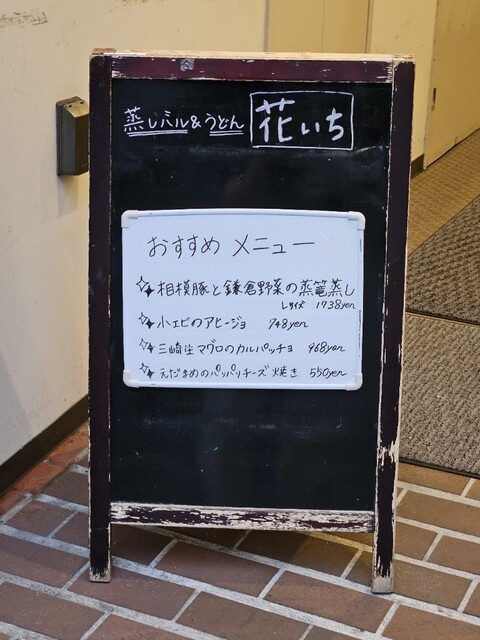 蒸しバル&うどん 花いち
おすすめ メニュー
相模豚と鎌倉野菜の蒸篭蒸し
Lサイズ 1738yen
小エビのアヒージョ 748yen
三崎産マグロのカルパッチョ 968yen
えだまめのパリパリチーズ焼き 550yen